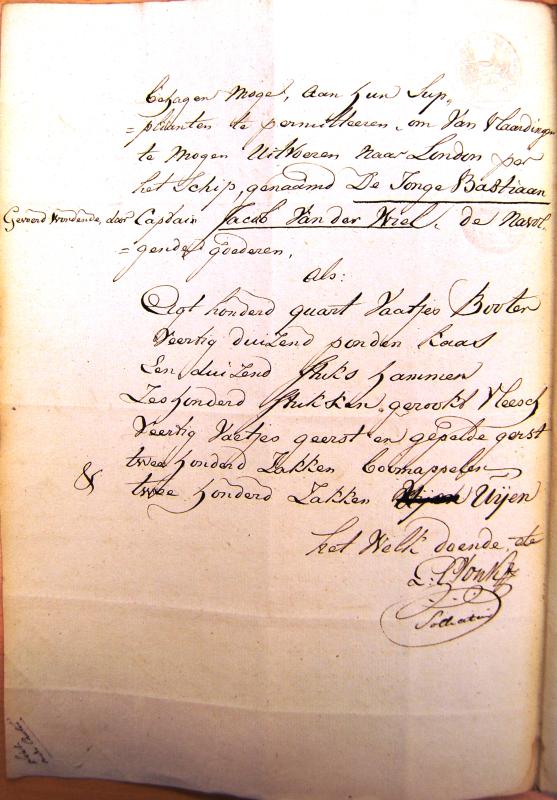 behagen Moge, aan hun Sup„
=plianten te permitteeren, om Van Vlaardingen
te Mogen Uitvoeren Naar London per
het Schip, genaamd De Jonge Bastiaan
Gevoerd Wordende, door Captain Jacob Van der Wiel, de Navol„
=gende goederen,
Als:
Agt honderd quart Vaatjes Booter
Veertig duizend ponden Kaas
Een duizend stuks Hammen
Zeshonderd stukken gerookt Vleesch
Veertig Vaetjes geerst en gepelde gerst
twee honderd Zakken boomappelen
& twee honderd Zakken Uÿen
het Welk doende etc
Solliciteur